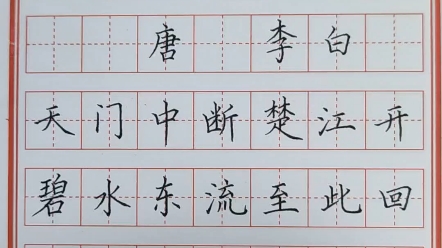 唐 李白
天门中断楚江开
碧水东流至此回